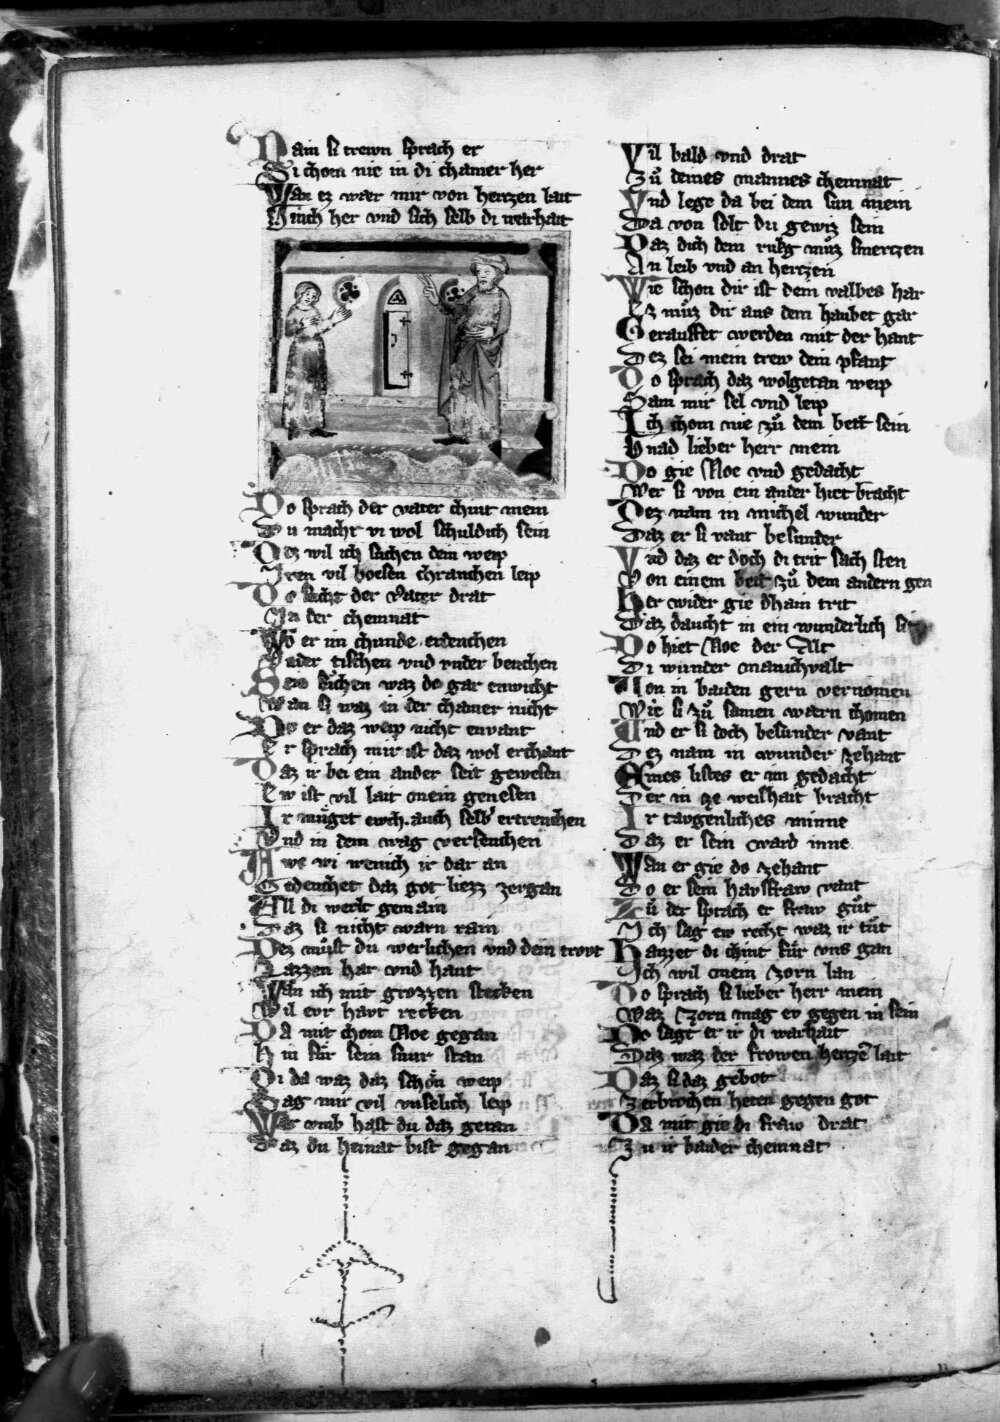 Nain si trewn sprach er
Si chom nie in di chamer her
Wan ez waer mir von hertzen lait
Sinch her vnd sich selb di warhait
Do sprach der vater chint mein
Du macht vi wol schuldich sein
Dez wil ich suchen dein weip
Iren vil boesen chranchen leip
Do sucht der vater drat
In der chemnat
Wo er im chunde erdenchen
Vnder tischen vnd vnder benchen
Sein suchen waz do gar enwicht
Wan si waz in der chamer nicht
Do er daz weip nicht envant
Er sprach mir ist daz wol erchant
Daz ir bei ein ander seit gewesen
Ew ist vil lait mein genesen
Ir muget ewch auch selb ertrenchen
Vnd in dem wag versenchen
Awe wi wenich ir dar an
Gedenchet daz got liezz zergan
All di werlt gemain
Daz si nicht warn rain
Dez muͤst du werlichen vnd dein trovt
Lazzen har vnd haut
Wan ich mit grozzen stecken
Wil evr havt recken
Da mit chom Noe gegan
Hin fuͤr sein snur stan
Di da waz daz schoͤn weip
Sag mir vil vnselich leip
War vmb hast du daz getan
Daz du heinat bist gegan
Vil bald vnd drat
Zuͦ deines mannes chemnat
Vnd lege da bei dem sun mein
Da von solt du gewiz sein
Daz dich dem rukg muͦz smertzen
An leib vnd an hertzen
Wie schon dir ist dem valbes har
Ez muͦz dir aus dem haubet gar
Gerauffet werden mit der hant
Dez sei mein trew dein pfant
Do sprach daz wolgetan weip
Sam mir sel vnd leip
Ich chom nie zuͦ dem bett sein
Gnad lieber herr mein
Do gie Noe vnd gedacht
Wer si von ein ander hiet bracht
Dez nam in michel wunder
Daz er si vant besunder
Vnd daz er doch di trit sach sten
Von einem bett zuͦ dem andern gen
Her wider gie dhain trit
Daz daucht in ein wunderlich sit
Do hiet Noe der Alt
Di wunder manichvalt
Von in baiden gern vernomen
Wie si zuͦ samen waern chomen
Vnd er si doch besunder vant
Dez nam in wunder zehant
Aines listes er im gedacht
Der in ze weishait bracht
Ir taugenliches minne
Daz er sein ward inne
Wan er gie do zehant
Do er sein havsfraw vant
Zuͦ der sprach er fraw guͦt
Ich sag ew recht waz ir tuͦt
Haizzet di chint fuͤr vns gan
Ich wil meinen zorn lan
Do sprach si lieber herr mein
Waz zorn mag ev gegen in sein
Do sagt er ir di warhait
Daz waz der frowen hertzen lait
Daz si daz gebot
Zerbrochen heten gegen got
Da mit gie di fraw drat
Zu ir baider chemnat